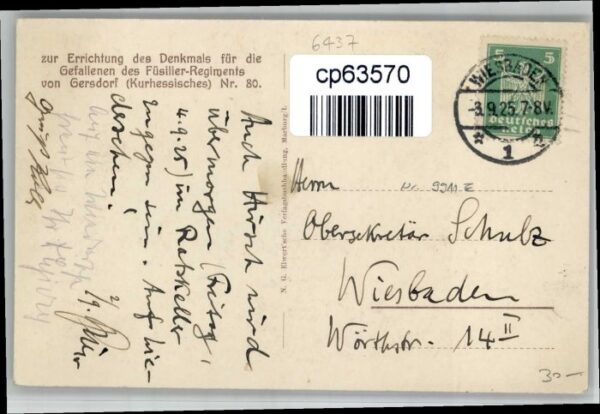 6437
zur Errichtung des Denkmals für die
Gefallenen des Füsilier-Regiments
von Gersdorf (Kurhessisches) Nr. 80.
cp63570
5 5
WIESBADEN
-3.9.25.7-8V.
* 1
Deutsches
Reich
Auch Hirsch wird
übermorgen (Freitag,
4.9.25) im Ratskeller
zugegen sein. Auf Wie-
dersehen!
2/9.
N. G. Elwert'sche Verlagsbuchhandlung, Marburg/L.
Herrn
Nr. 9911 E
Obersekretär Schulz
Wiesbaden
Wörthstr. 14 II
30-